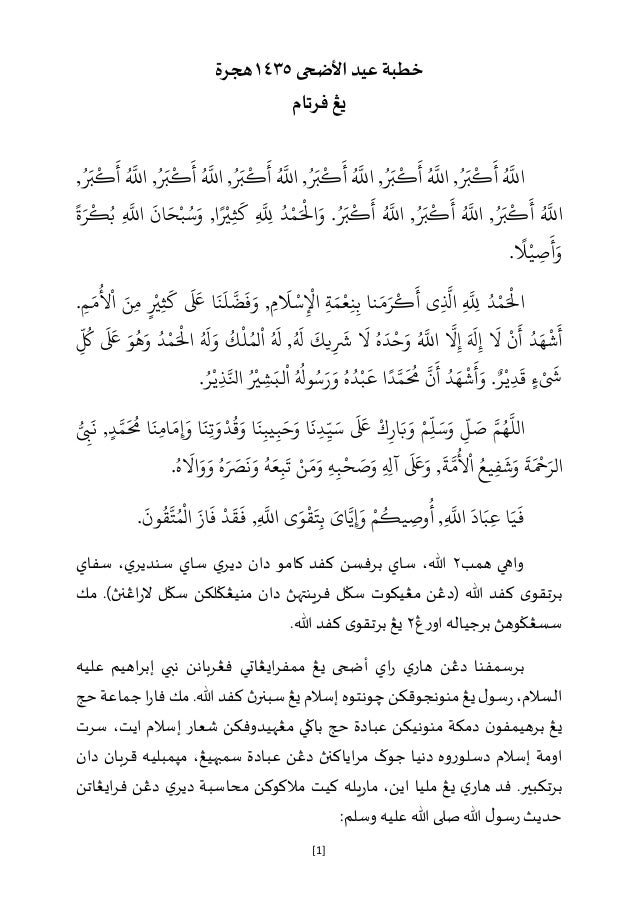 خطبة عيد الأضحى ١٤٣٥هجرة
يڠ فرتام
اللهُ أَكْبَرُ, اللهُ أَكْبَرُ, اللهُ أَكْبَرُ, اللهُ أَكْبَرُ, اللهُ أَكْبَرُ, اللهُ أَكْبَرُ,
اللهُ أَكْبَرُ, اللهُ أَكْبَرُ, اللهُ أَكْبَرُ. وَالْحَمْدُ لِلَّهِ كَثِيْرًا, وَسُبْحَانَ اللهِ بُكْرَةً
وَأَصِيْلًا.
الْحَمْدُ لِلَّهِ الَّذِى أَكْرَمَنا بِنِعْمَةِ الْإِسْلَامِ, وَفَضَّلَنَا عَلَى كَثِيْرٍ مِنَ الْأُمَمِ.
أَشْهَدُ أَنْ لَا إِلَهَ إِلَّا اللهُ وَحْدَهُ لَا شَرِيكَ لَهُ, لَهُ الْمُلْكُ وَلَهُ الْحَمْدُ وَهُوَ عَلَى كُلِّ
شَيْءٍ قَدِيْرٌ. وَأَشْهَدُ أَنَّ مُحَمَّدًا عَبْدُهُ وَرَسُولُهُ الْبَشِيْرُ النَّذِيْرُ.
اللَّهُمَّ صَلِّ وَسَلِّمْ وَبَارِكْ عَلَى سَيِّدِنَا وَحَبِيبِنَا وَقُدْوَتِنَا وَإِمَامِنَا مُحَمَّدٍ, نَبِيُّ
الرَحْمَةَ وَشَفِيعُ الْأُمَّةَ, وَعَلَى آلِهِ وَصَحْبِهِ وَمَنْ تَبِعَهُ وَنَصَرَهُ وَوَالَاهُ.
فَيَا عِبَادَ اللهِ, أُوصِيكُمْ وَإِيَّاىَ بِتَقْوَى اللهِ, فَقَدْ فَازَ الْمُتَّقُونَ.
واهي همب٢ الله، ساي برفسن كفد كامو دان ديري ساي سنديري، سفاي
برتقوى كفد الله (دڠن مڠيكوت سݢل فرينتهڽ دان منيڠݢلكن سݢل لاراڠنڽ). مك
سسڠݢوهڽ برجياله اورڠ٢ يڠ برتقوى كفد الله.
برسمفنا دڠن هاري راي أضحى يڠ ممفرايڠاتي فڠربانن نبي إبراهيم عليه
السلام، رسول يڠ منونجوقكن چونتوه إسلام يڠ سبنرڽ كفد الله. مك فارا جماعة حج
يڠ برهيمفون دمكة منونيكن عبادة حج باݢي مڠهيدوفكن شعار إسلام ايت، سرت
اومة إسلام دسلوروه دنيا جوݢ مراياكنڽ دڠن عبادة سمبهيڠ، ميمبليه قربان دان
برتكبير. فد هاري يڠ مليا اين، ماريله كيت ملاكوكن محاسبة ديري دڠن فرايڠاتن
حديث رسول الله صلى الله عليه وسلم:
[1]